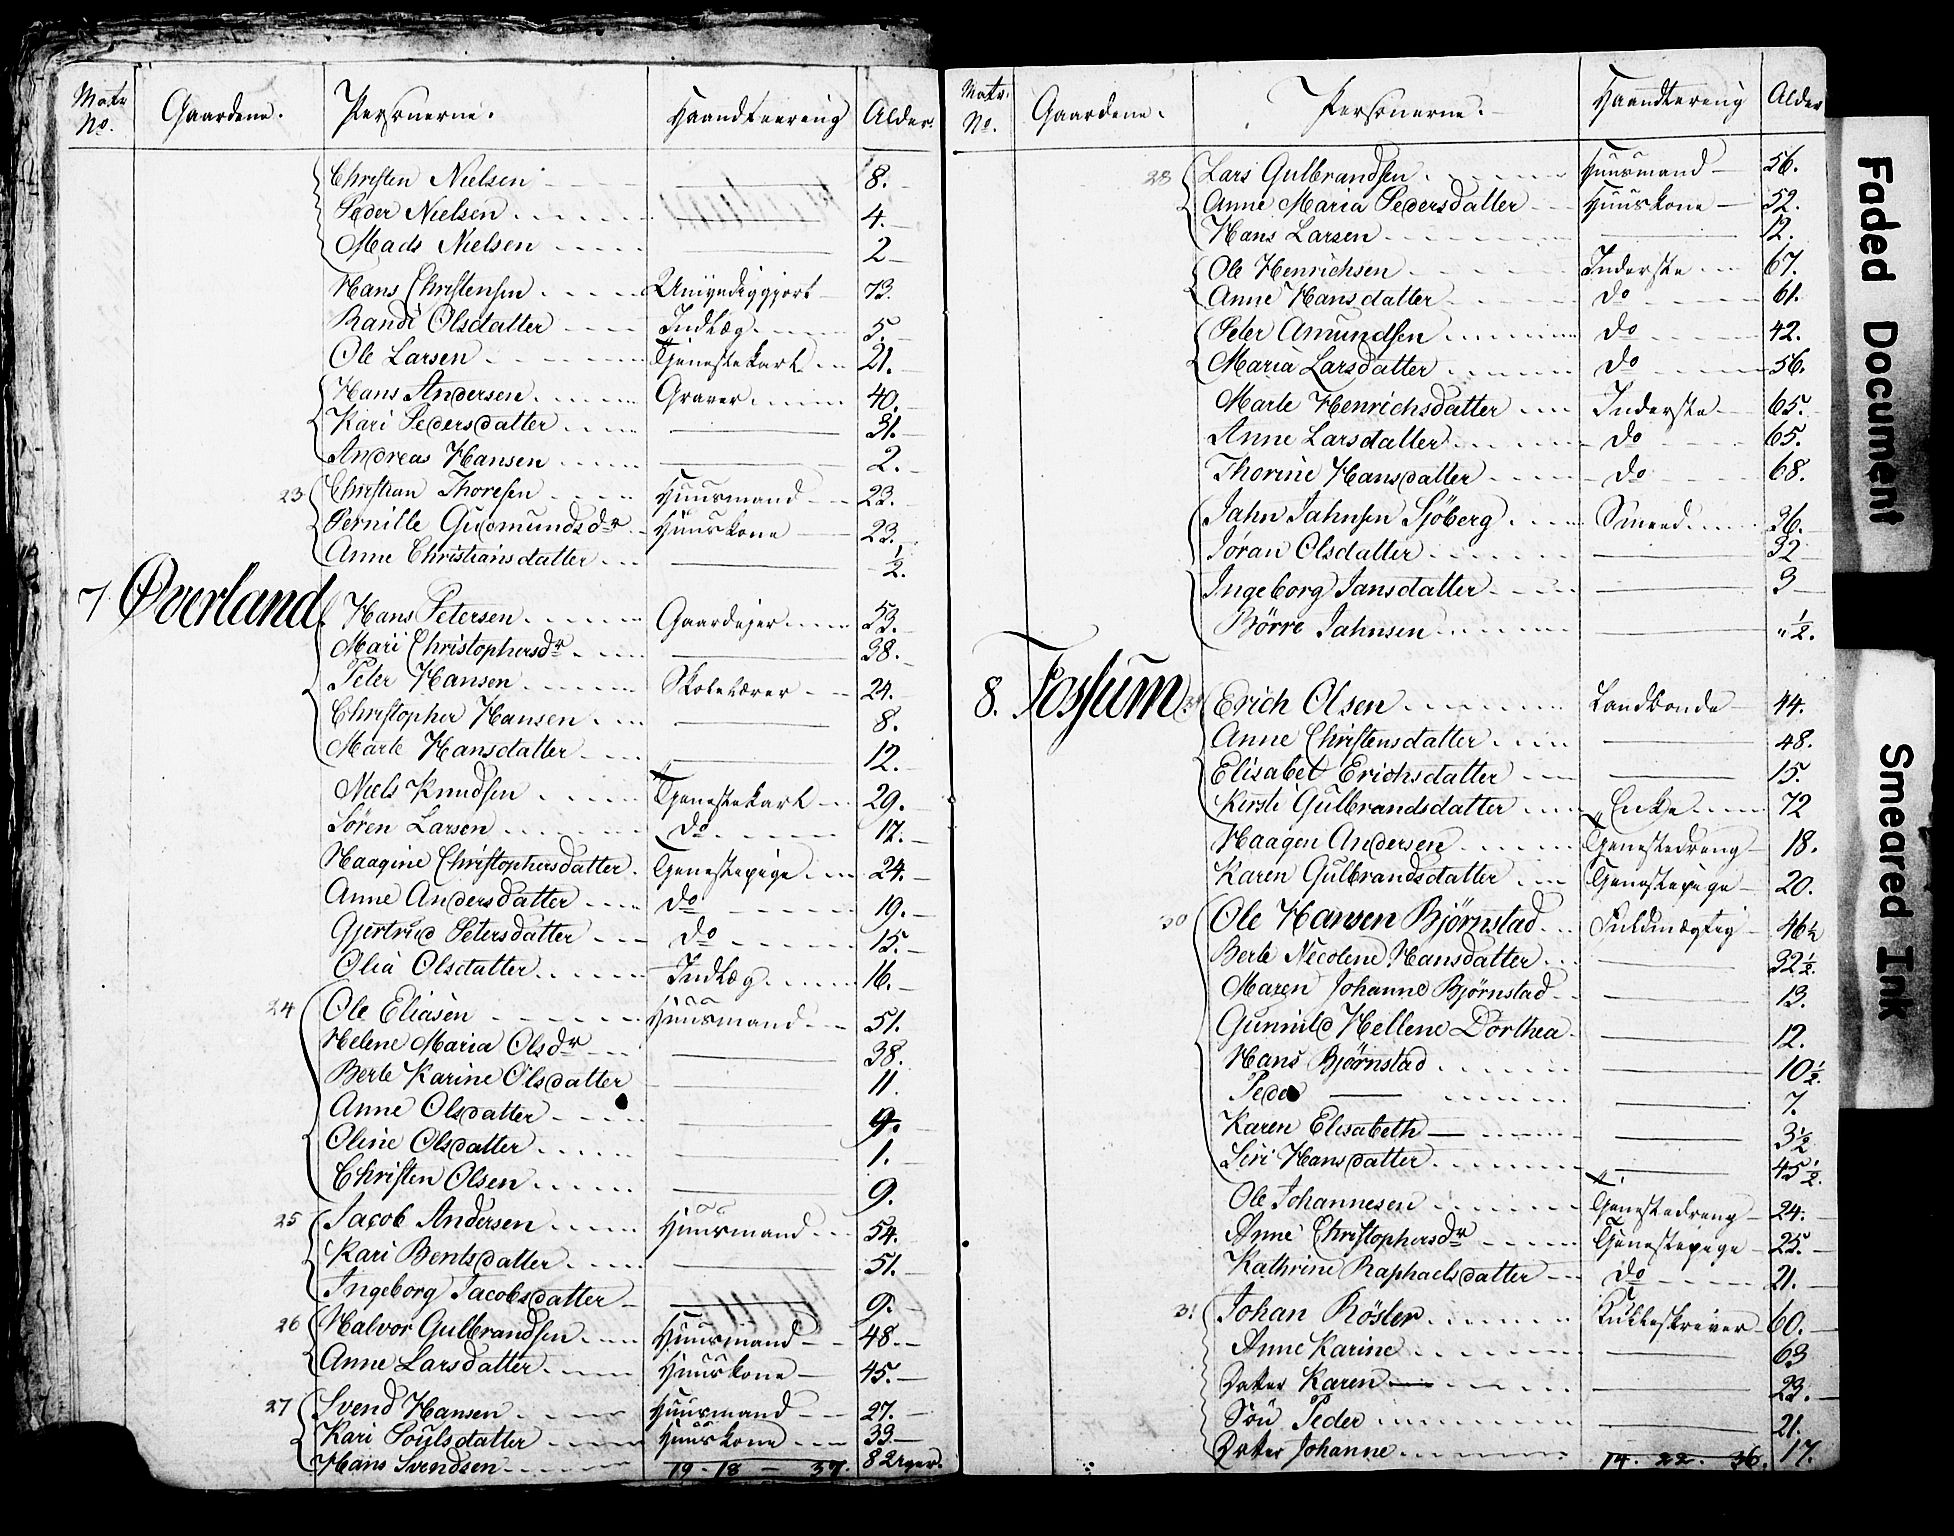 Matr No. Gaardene. Personerne. Haandteering Alder.
Christen Nielsen 8.
Peder Nielsen 4.
Mads Nielsen 2
Hans Christensen Umyndiggjort 73.
Randi Olsdatter Indlæg 5.
Ole Larsen Tjenestekarl 21.
Hans Andersen Graver 40.
Kari Pedersdatter 31.
Andreas Hansen 2.
23 Christian Thoresen Huusmand 23.
Pernille Gudmundsdr Huuskone 23.
Anne Christiansdatter ½.
7 Øverland Hans Petersen Gaardejer 53.
Mari Christophersdr 38.
Peter Hansen Skolelærer 24.
Christopher Hansen 8.
Marte Hansdatter 12.
Niels Knudsen Tjenestekarl 29.
Søren Larsen do 17.
Haagine Christophersdatter Tjenestepige 24.
Anne Andersdatter do 19.
Gjertrud Petersdatter do 15.
Olia Olsdatter Indlæg 16.
24 Ole Eliasen Huusmand 51.
Helene Maria Olsdr 38.
Berte Karine Olsdatter 11.
Anne Olsdatter 4.
Oline Olsdatter 1.
Christen Olsen 9.
25 Jacob Andersen Huusmand 54.
Kari Bentsdatter 51.
Ingeborg Jacobsdatter 9.
26 Halvor Gulbrandsen Huusmand 48.
Anne Larsdatter Huuskone 45.
27 Svend Hansen Huusmand 27.
Kari Poulsdatter Huuskone 33.
Hans Svendsen 8 Uger.
19 - 18 - 37.
Matr. No. Gaardene. Personerne. Haandtering Alder
28 Lars Gulbrandsen Huusmand 56.
Anne Maria Pedersdatter Huuskone 52.
Hans Larsen 12.
Ole Henrichsen Inderste 67.
Anne Hansdatter do 61.
Peter Amundsen do 42.
Maria Larsdatter do 56.
Marte Henrichsdatter Inderste 65.
Anne Larsdatter do 65.
Thorine Hansdatter do 68.
Jahn Jahnsen Sjöberg Smed 36.
Jøran Olsdatter 32
Ingeborg Jansdatter 3
Börre Jahnsen " ½.
8. Fossum Erich Olsen Landbonde 44.
Anne Christensdatter 48.
Elisabet Erichsdatter 15.
Kirsti Gulbrandsdatter Enke 72
Haagen Andersen Tjenestedreng 18.
Karen Gulbrandsdatter Tjenestepige 20.
30 Ole Hansen Björnstad Fuldmægtig 46½
Berte Nicolene Hansdatter 32½.
Maren Johanne Bjørnstad 13.
Gunnild Hellene Dorthea 12.
Hans Bjørnstad 10½.
Peder 7.
Karen Elisabeth 3½
Siri Hansdatter 45½.
Ole Johannesen Tjenestedreng 24.
Anne Christophersdr Tjenestepige 25.
Kathrine Raphaelsdatter do 21.
31 Johan Rösler Kulleskriver 60.
Anne Karine 63
Datter Karen 23.
Sön Peder 21.
Datter Johanne 17.
14. 22. 36.
Faded Document
Smeared Ink